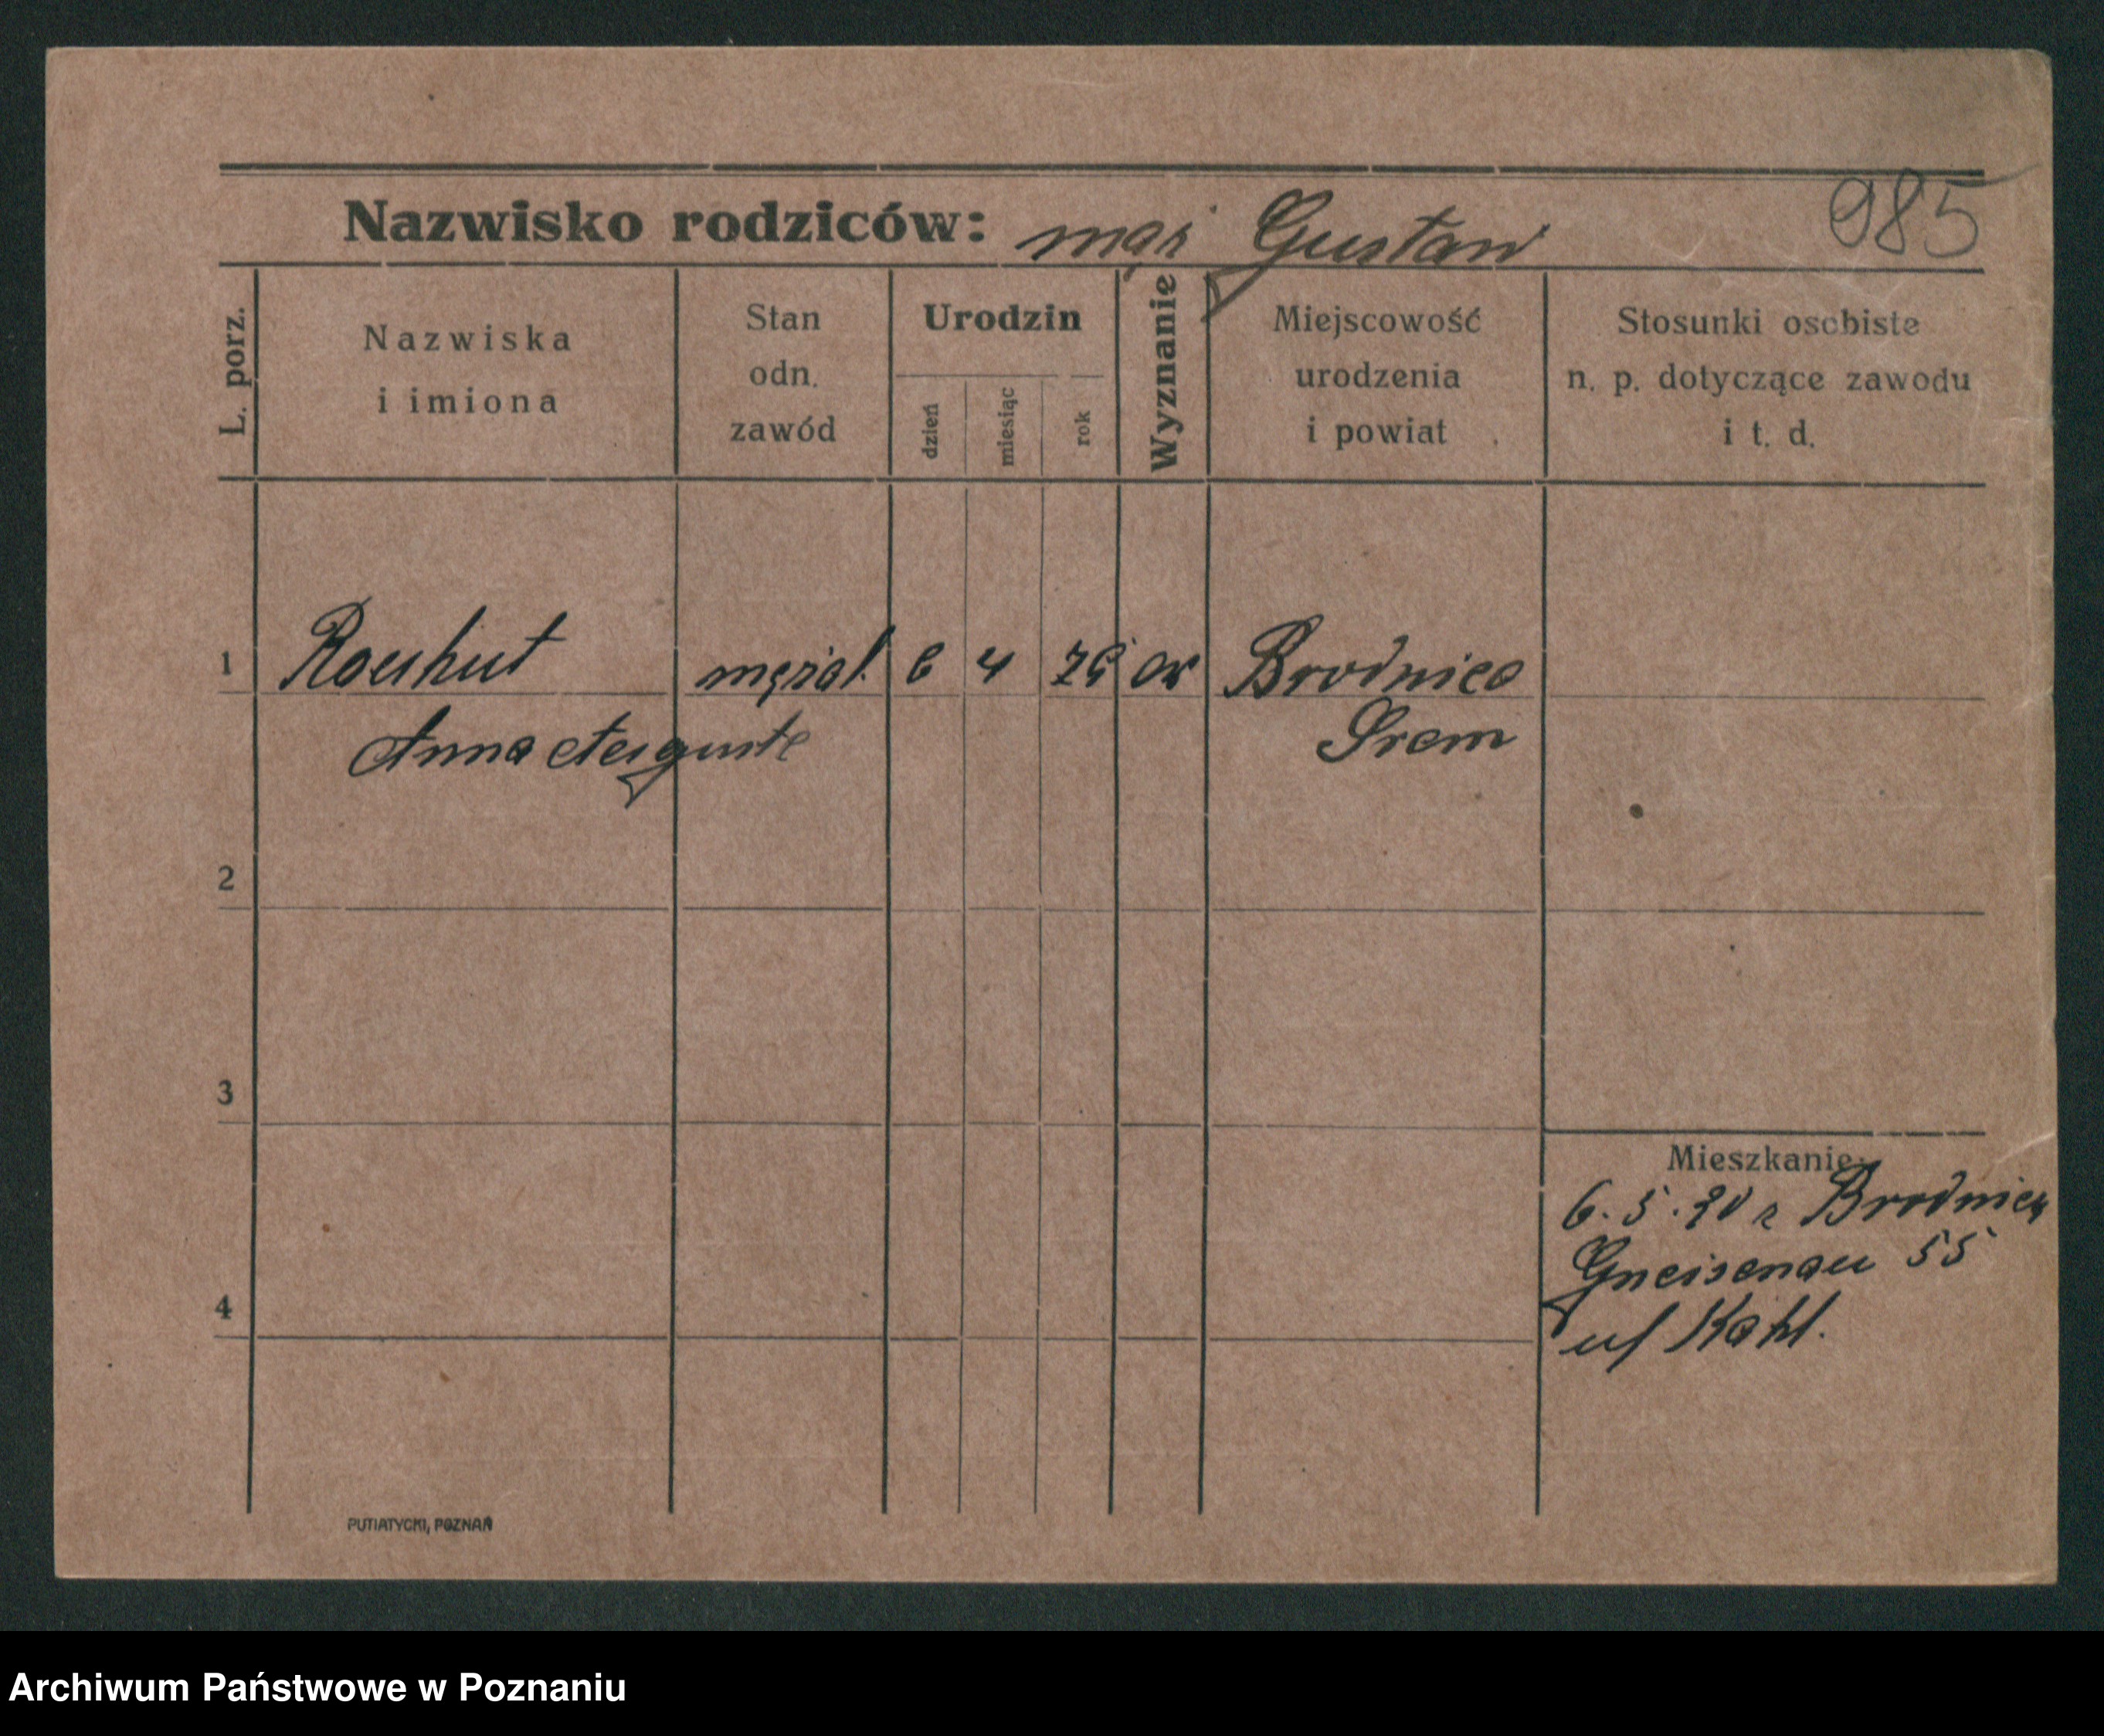 Nazwisko rodziców: mąż Gustaw 985
L. porz.
Nazwiska
i imiona
Stan
odn.
zawód
Urodzin
dzień
miesiąc
rok
Wyznanie
Miejscowość
urodzenia
i powiat
Stosunki osobiste
n. p. dotyczące zawodu
i t. d.
1 Rauhut mężat. 6 4 75 ew Brodnica
Anna Auguste Śrem
2
3
4
Mieszkanie:
6.5.20 z Brodnicy
Gneisenau 55
u/ Kahl.
PUTIATYCKI, POZNAŃ
Archiwum Państwowe w Poznaniu